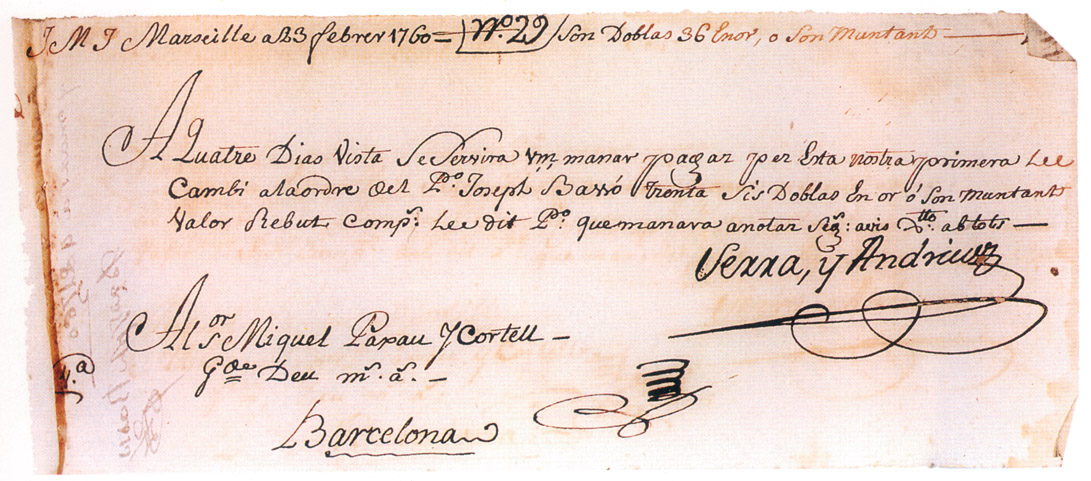 J M J Marseille a 23 febrer 1760 = Nº. 29 / Son Doblas 36 En or, o Son Muntant
A Quatre Dias Vista Se Servira Vm manar pagar per Esta nostra primera De
Cambi a la ordre del Pº. Joseph Barró Trenta Sis Doblas En or ó Son Muntant
Valor Rebut Comps: De dit Pº. que manara anotar Sg: avis Xtto. ab tots —
Serra, y Andrieu
Al Sor Miquel Papau Y Cortell —
Gde Deu ms. as. —
Barcelona